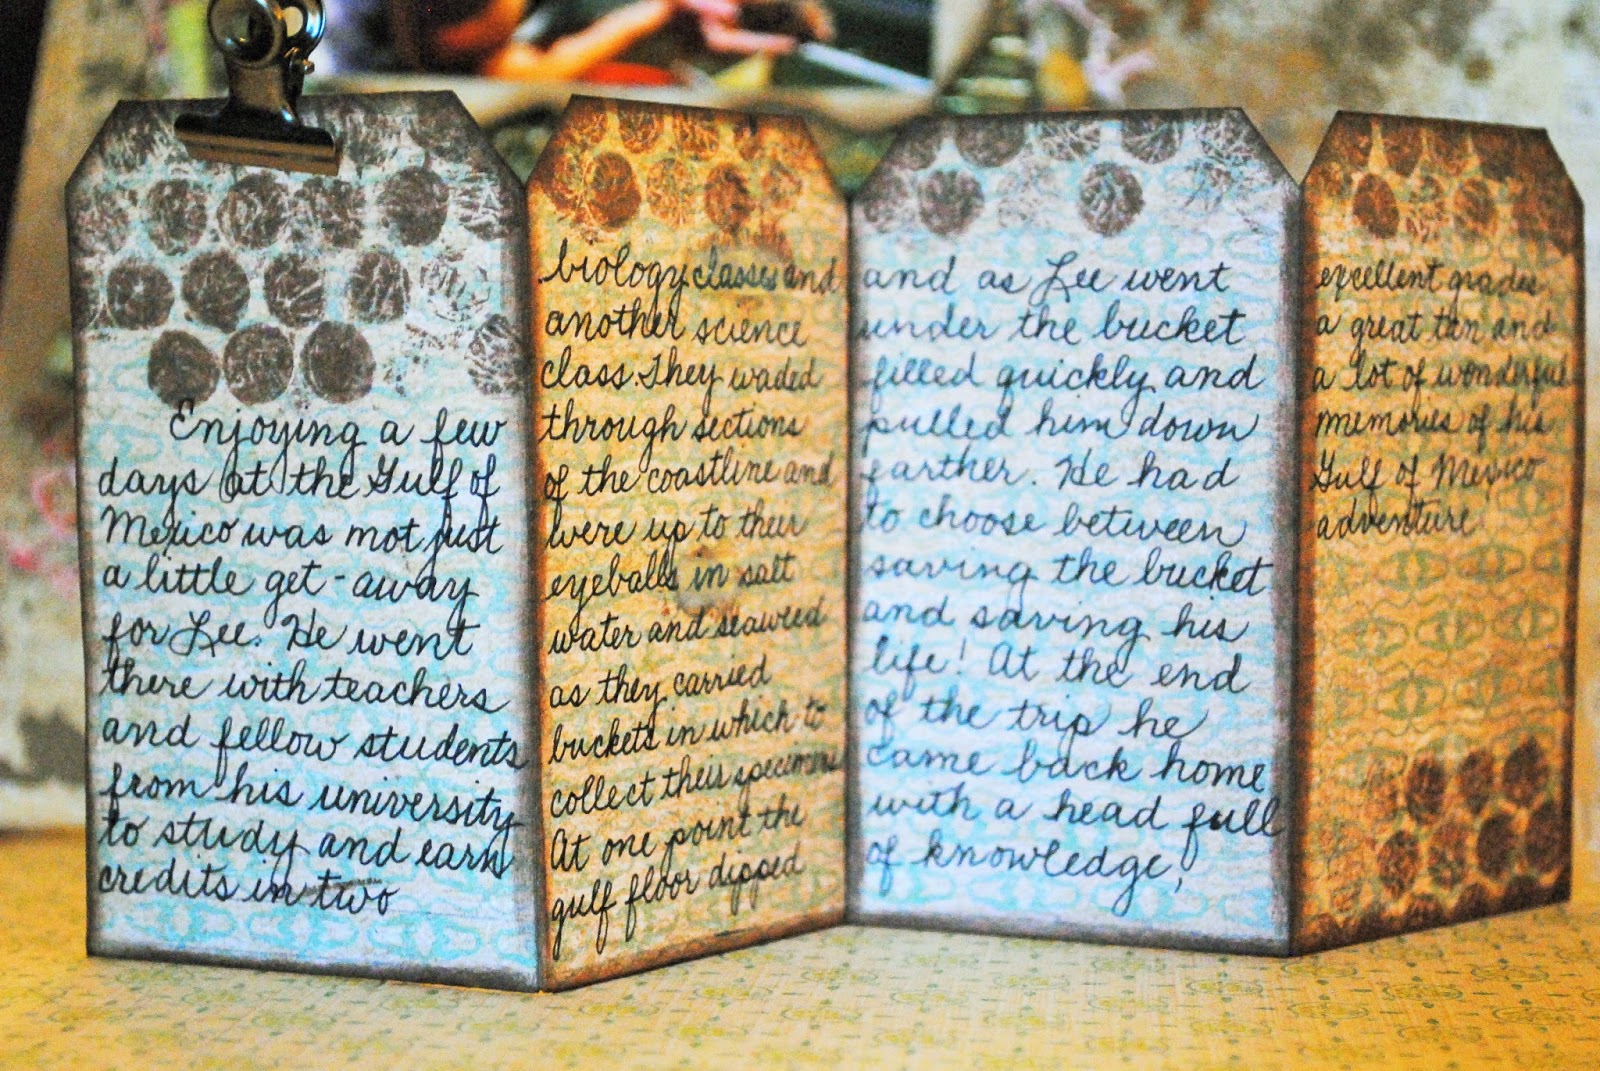 Enjoying a few
days at the Gulf of
Mexico was not just
a little get-away
for Lee. He went
there with teachers
and fellow students
from his university
to study and earn
credits in two
biology classes and
another science
class. They waded
through sections
of the coastline and
were up to their
eyeballs in salt
water and seaweed
as they carried
buckets in which to
collect their specimens
At one point the
gulf floor dipped
and as Lee went
under the bucket
filled quickly and
pulled him down
farther. He had
to choose between
saving the bucket
and saving his
life! At the end
of the trip he
came back home
with a head full
of knowledge,
excellent grades,
a great tan and
a lot of wonderful
memories of his
Gulf of Mexico
adventure